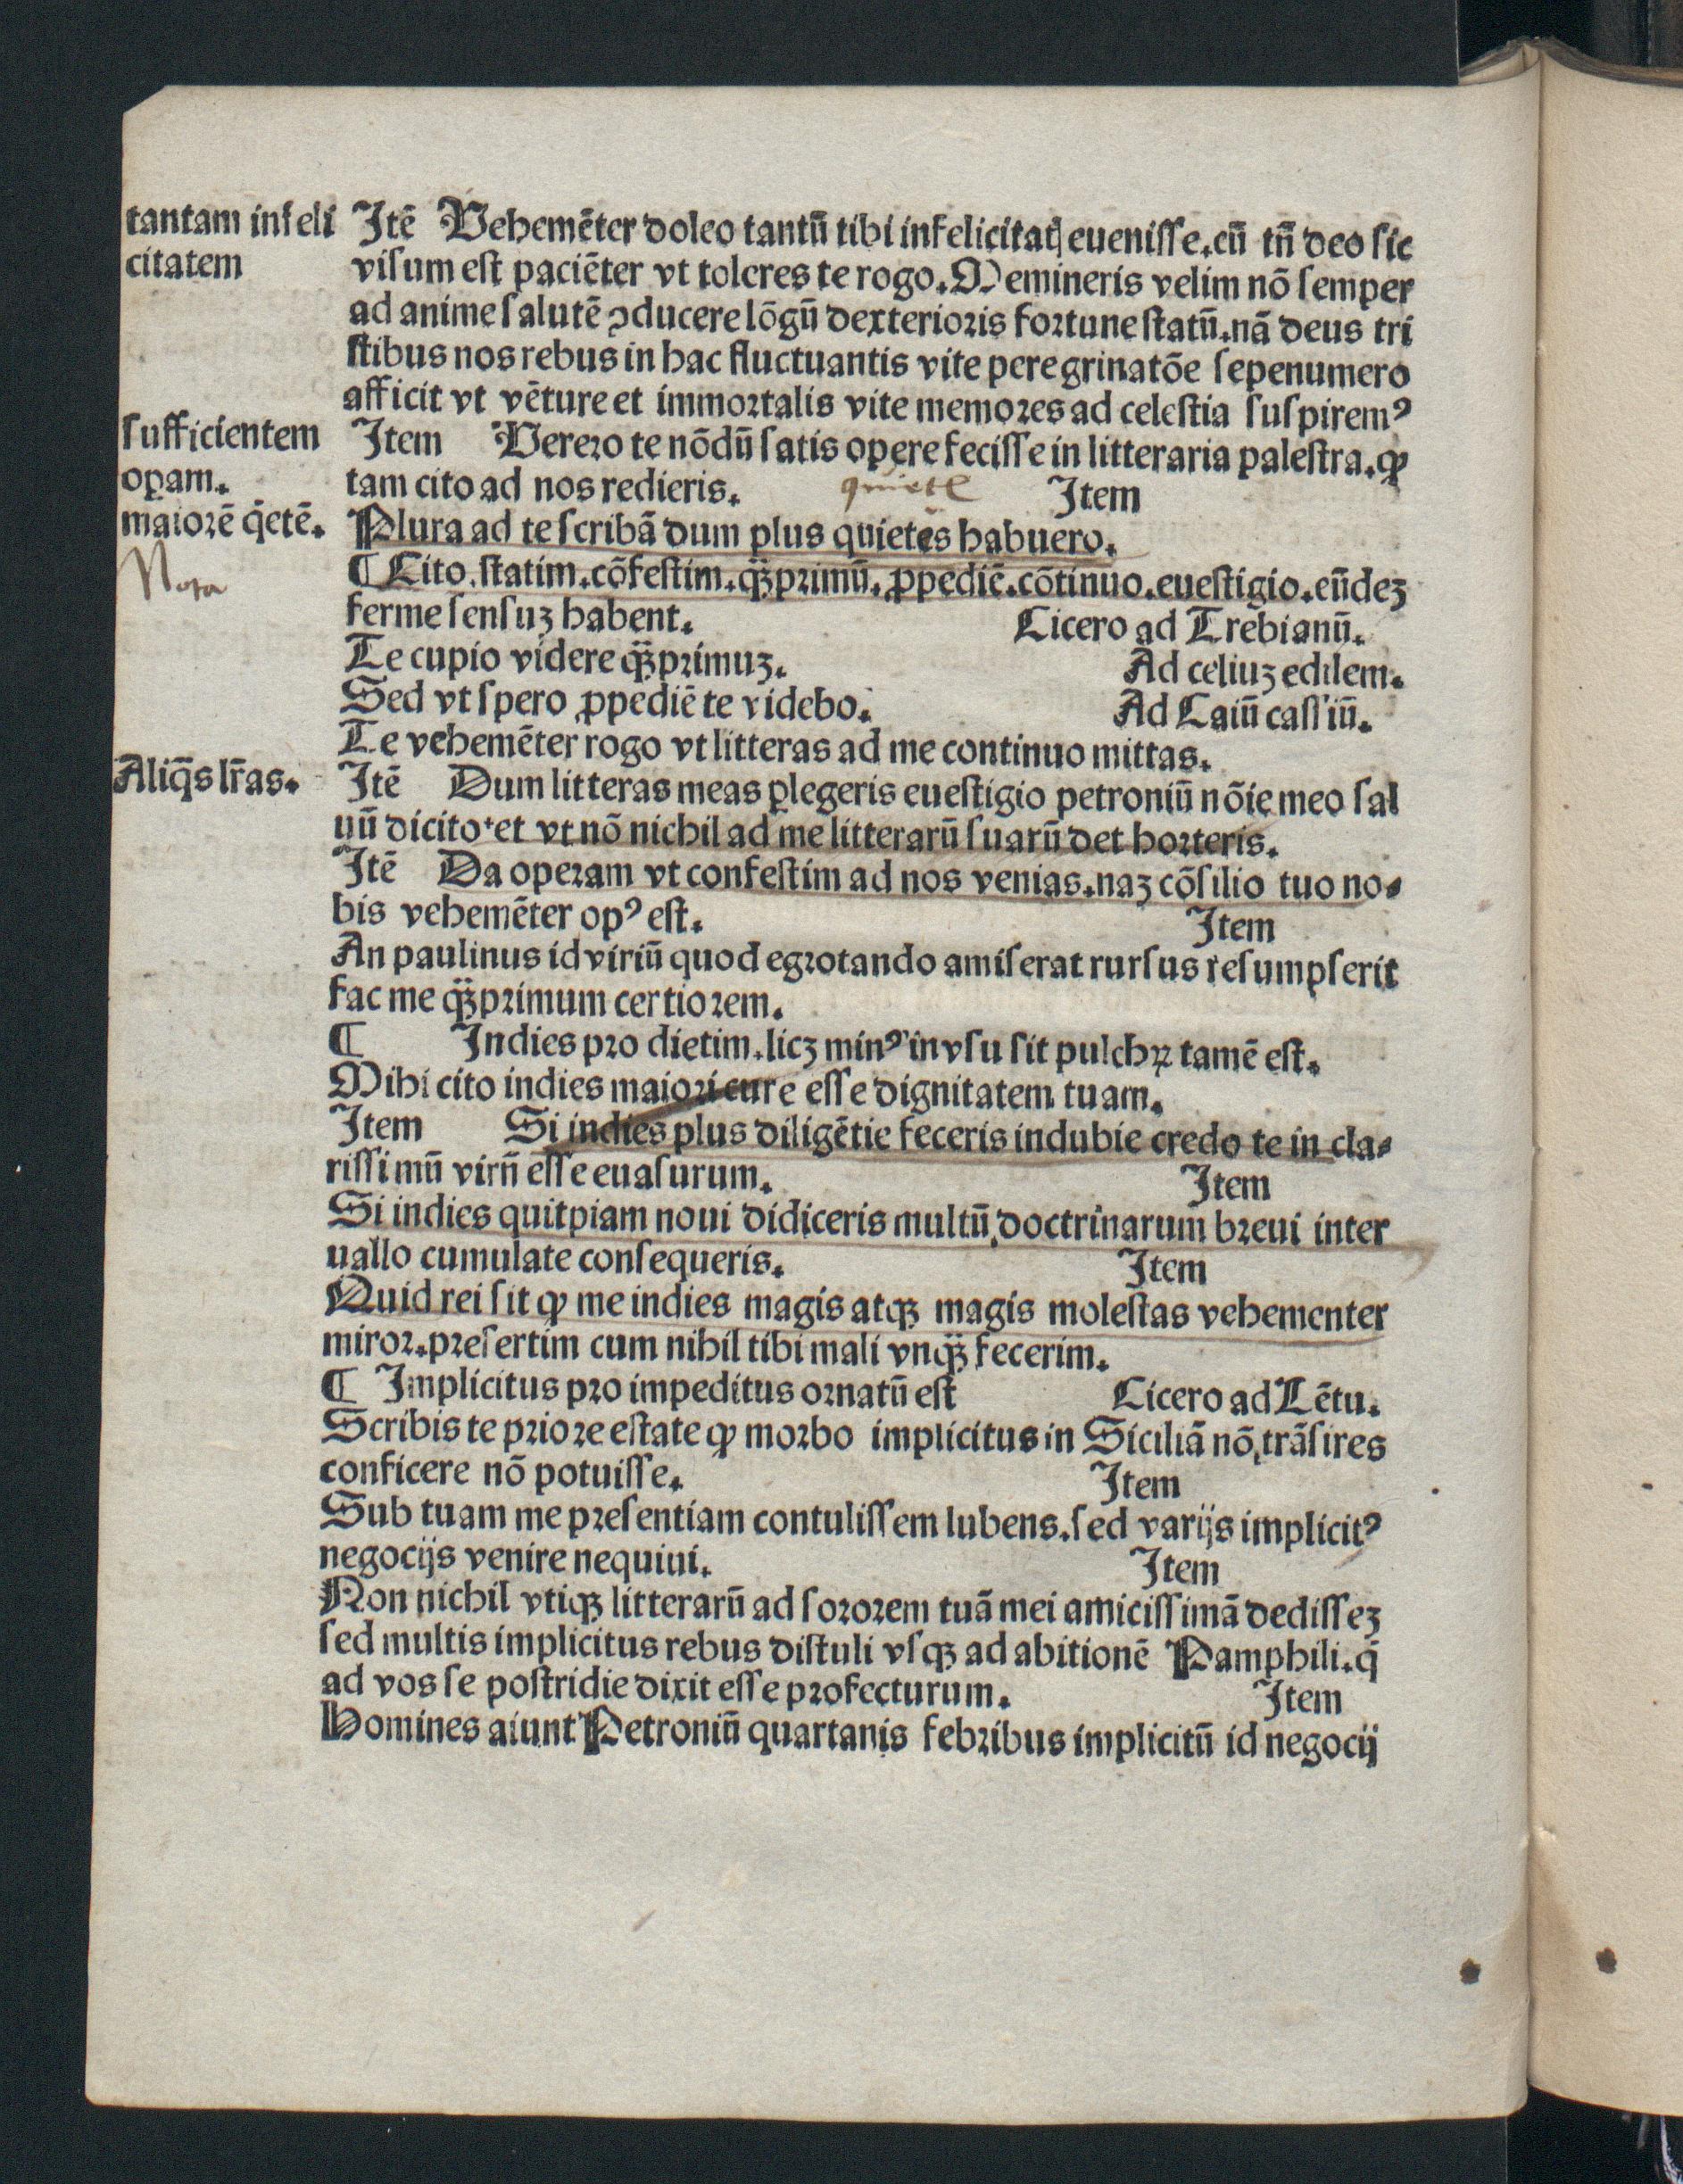 tantam infeli
citatem
Itē Vehemēter doleo tantū tibi infelicitatꝭ eueniſſe.cū tn̄ deo ſic
viſum eſt paciēter vt toleres te rogo.Memineris velim nō ſemper
ad anime ſalutē ꝯducere lōgū dexterioris fortune ſtatū.nā deus tri
ſtibus nos rebus in hac fluctuantis vite peregrinatōe ſepenumero
afficit vt vēture et immortalis vite memores ad celeſtia ſuſpiremꝰ
ſufficientem
oꝑam.
Item Vereor te nōdū ſatis opere feciſſe in litteraria paleſtra.ꝙ
tam cito ad nos redieris. quietē Item
maiorē q̄etē.
Plura ad te ſcribā dum plus quietes habuero.
Nota
¶ Cito.ſtatim.cōfeſtim.qꝫprimū.ꝓpediē.cōtinuo.eueſtigio.eūdeꝫ
ferme ſenſuꝫ habent. Cicero ad Trebianū.
Te cupio videre qꝫprimuꝫ. Ad celiuꝫ edilem.
Sed vt ſpero ꝓpediē te videbo. Ad Caiū caſſiū.
Te vehemēter rogo vt litteras ad me continuo mittas.
Aliq̄s lr̄as.
Itē Dum litteras meas ꝑlegeris eueſtigio petroniū nōie meo ſal
uū dicito et vt nō nichil ad me litterarū ſuarū det horteris.
Itē Da operam vt confeſtim ad nos venias.naꝫ cōſilio tuo no⸗
bis vehemēter opꝰ eſt. Item
An paulinus id viriū quod egrotando amiſerat rurſus reſumpſerit
fac me qꝫprimum certiorem.
¶ Indies pro dietim.licꝫ minꝰ in vſu ſit pulchꝝ tamē eſt.
Mihi cito indies maiori cure eſſe dignitatem tuam.
Item Si indies plus diligētie feceris indubie credo te in cla⸗
riſſimū virū eſſe euaſurum. Item
Si indies quitpiam noui didiceris multū doctrinarum breui inter
uallo cumulate conſequeris. Item
Quid rei ſit ꝙ me indies magis atqꝫ magis moleſtas vehementer
miror.preſertim cum nihil tibi mali vnqꝫ fecerim.
¶ Implicitus pro impeditus ornatū eſt Cicero ad Lētu.
Scribis te priore eſtate ꝙ morbo implicitus in Siciliā nō trāſires
conficere nō potuiſſe. Item
Sub tuam me preſentiam contuliſſem lubens.ſed varijs implicitꝰ
negocijs venire nequiui. Item
Non nichil vtiqꝫ litterarū ad ſororem tuā mei amiciſſimā dediſſeꝫ
ſed multis implicitus rebus diſtuli vſqꝫ ad abitionē Pamphili.q̄
ad vos ſe poſtridie dixit eſſe profecturum. Item
Homines aiunt Petroniū quartanis febribus implicitū id negocij